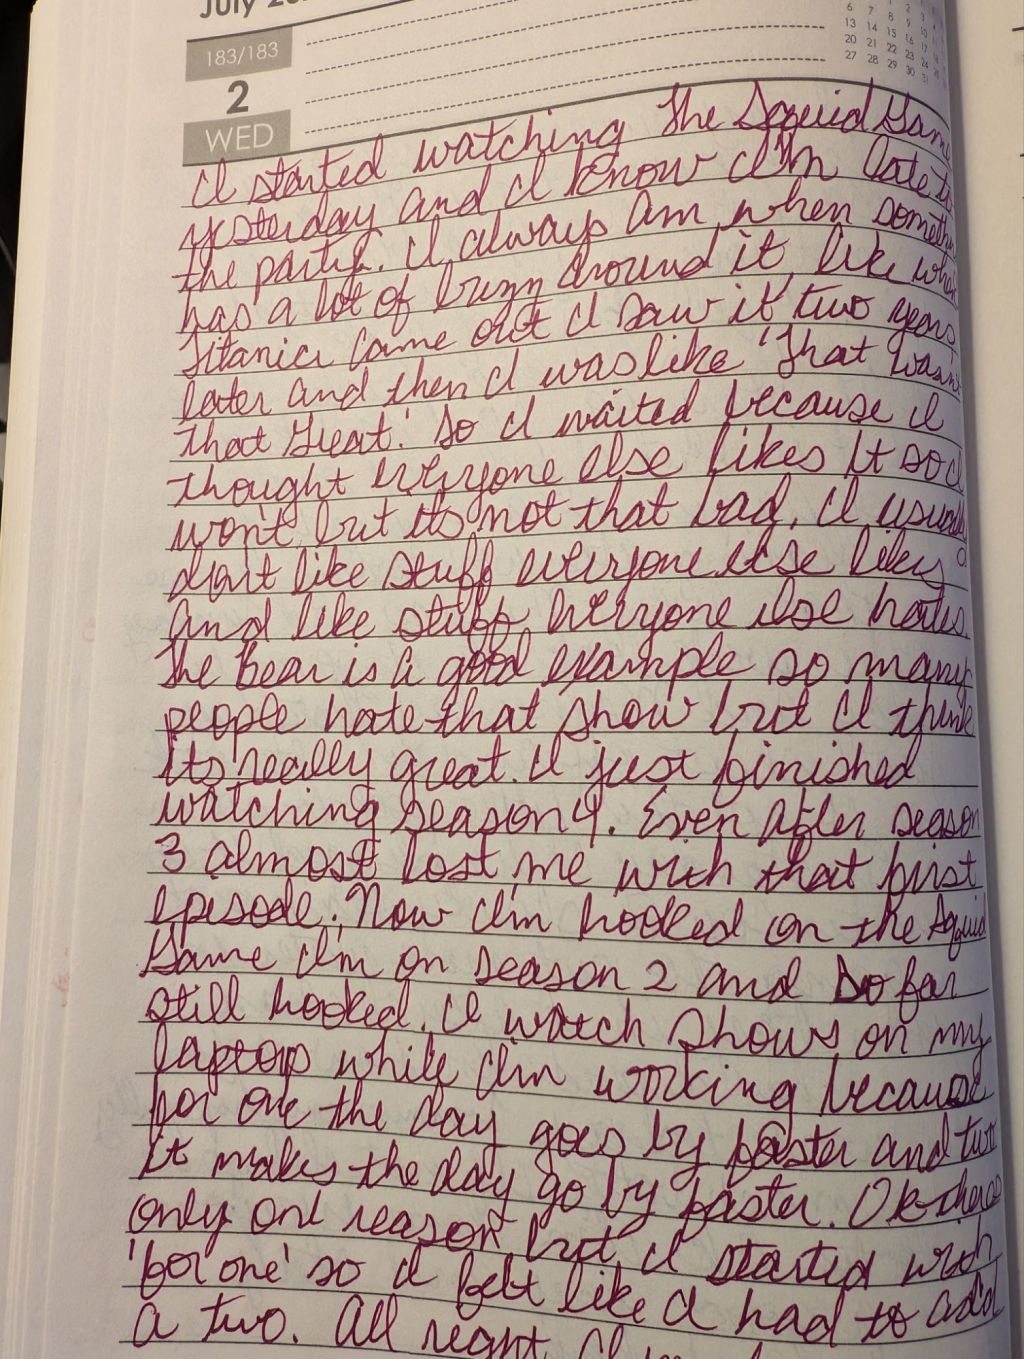 July
6 7 8 9
13 14 15 16 17
20 21 22 23 24
27 28 29 30 31
183/183
2
WED
I started watching The Squid Game
yesterday and I know I'm late to
the party. I always am when someth
has a lot of buzz around it, like when
Titanic came out I saw it two years
later and then I was like 'That wasn't
that great.' So I waited because I
thought everyone else likes it so I
won't but its not that bad. I usually
don't like stuff everyone else likes
and like stuff everyone else hates.
The Bear is a good example so many
people hate that show but I think
its really great. I just finished
watching season 4. Even after season
3 almost lost me with that first
episode. Now I'm hooked on the Squid
Game I'm on season 2 and so far
still hooked. I watch shows on my
laptop while I'm working because
for one the day goes by faster and two
it makes the day go by faster. Ok theres
only one reason but I started with
'for one' so I felt like I had to add
a two. All right